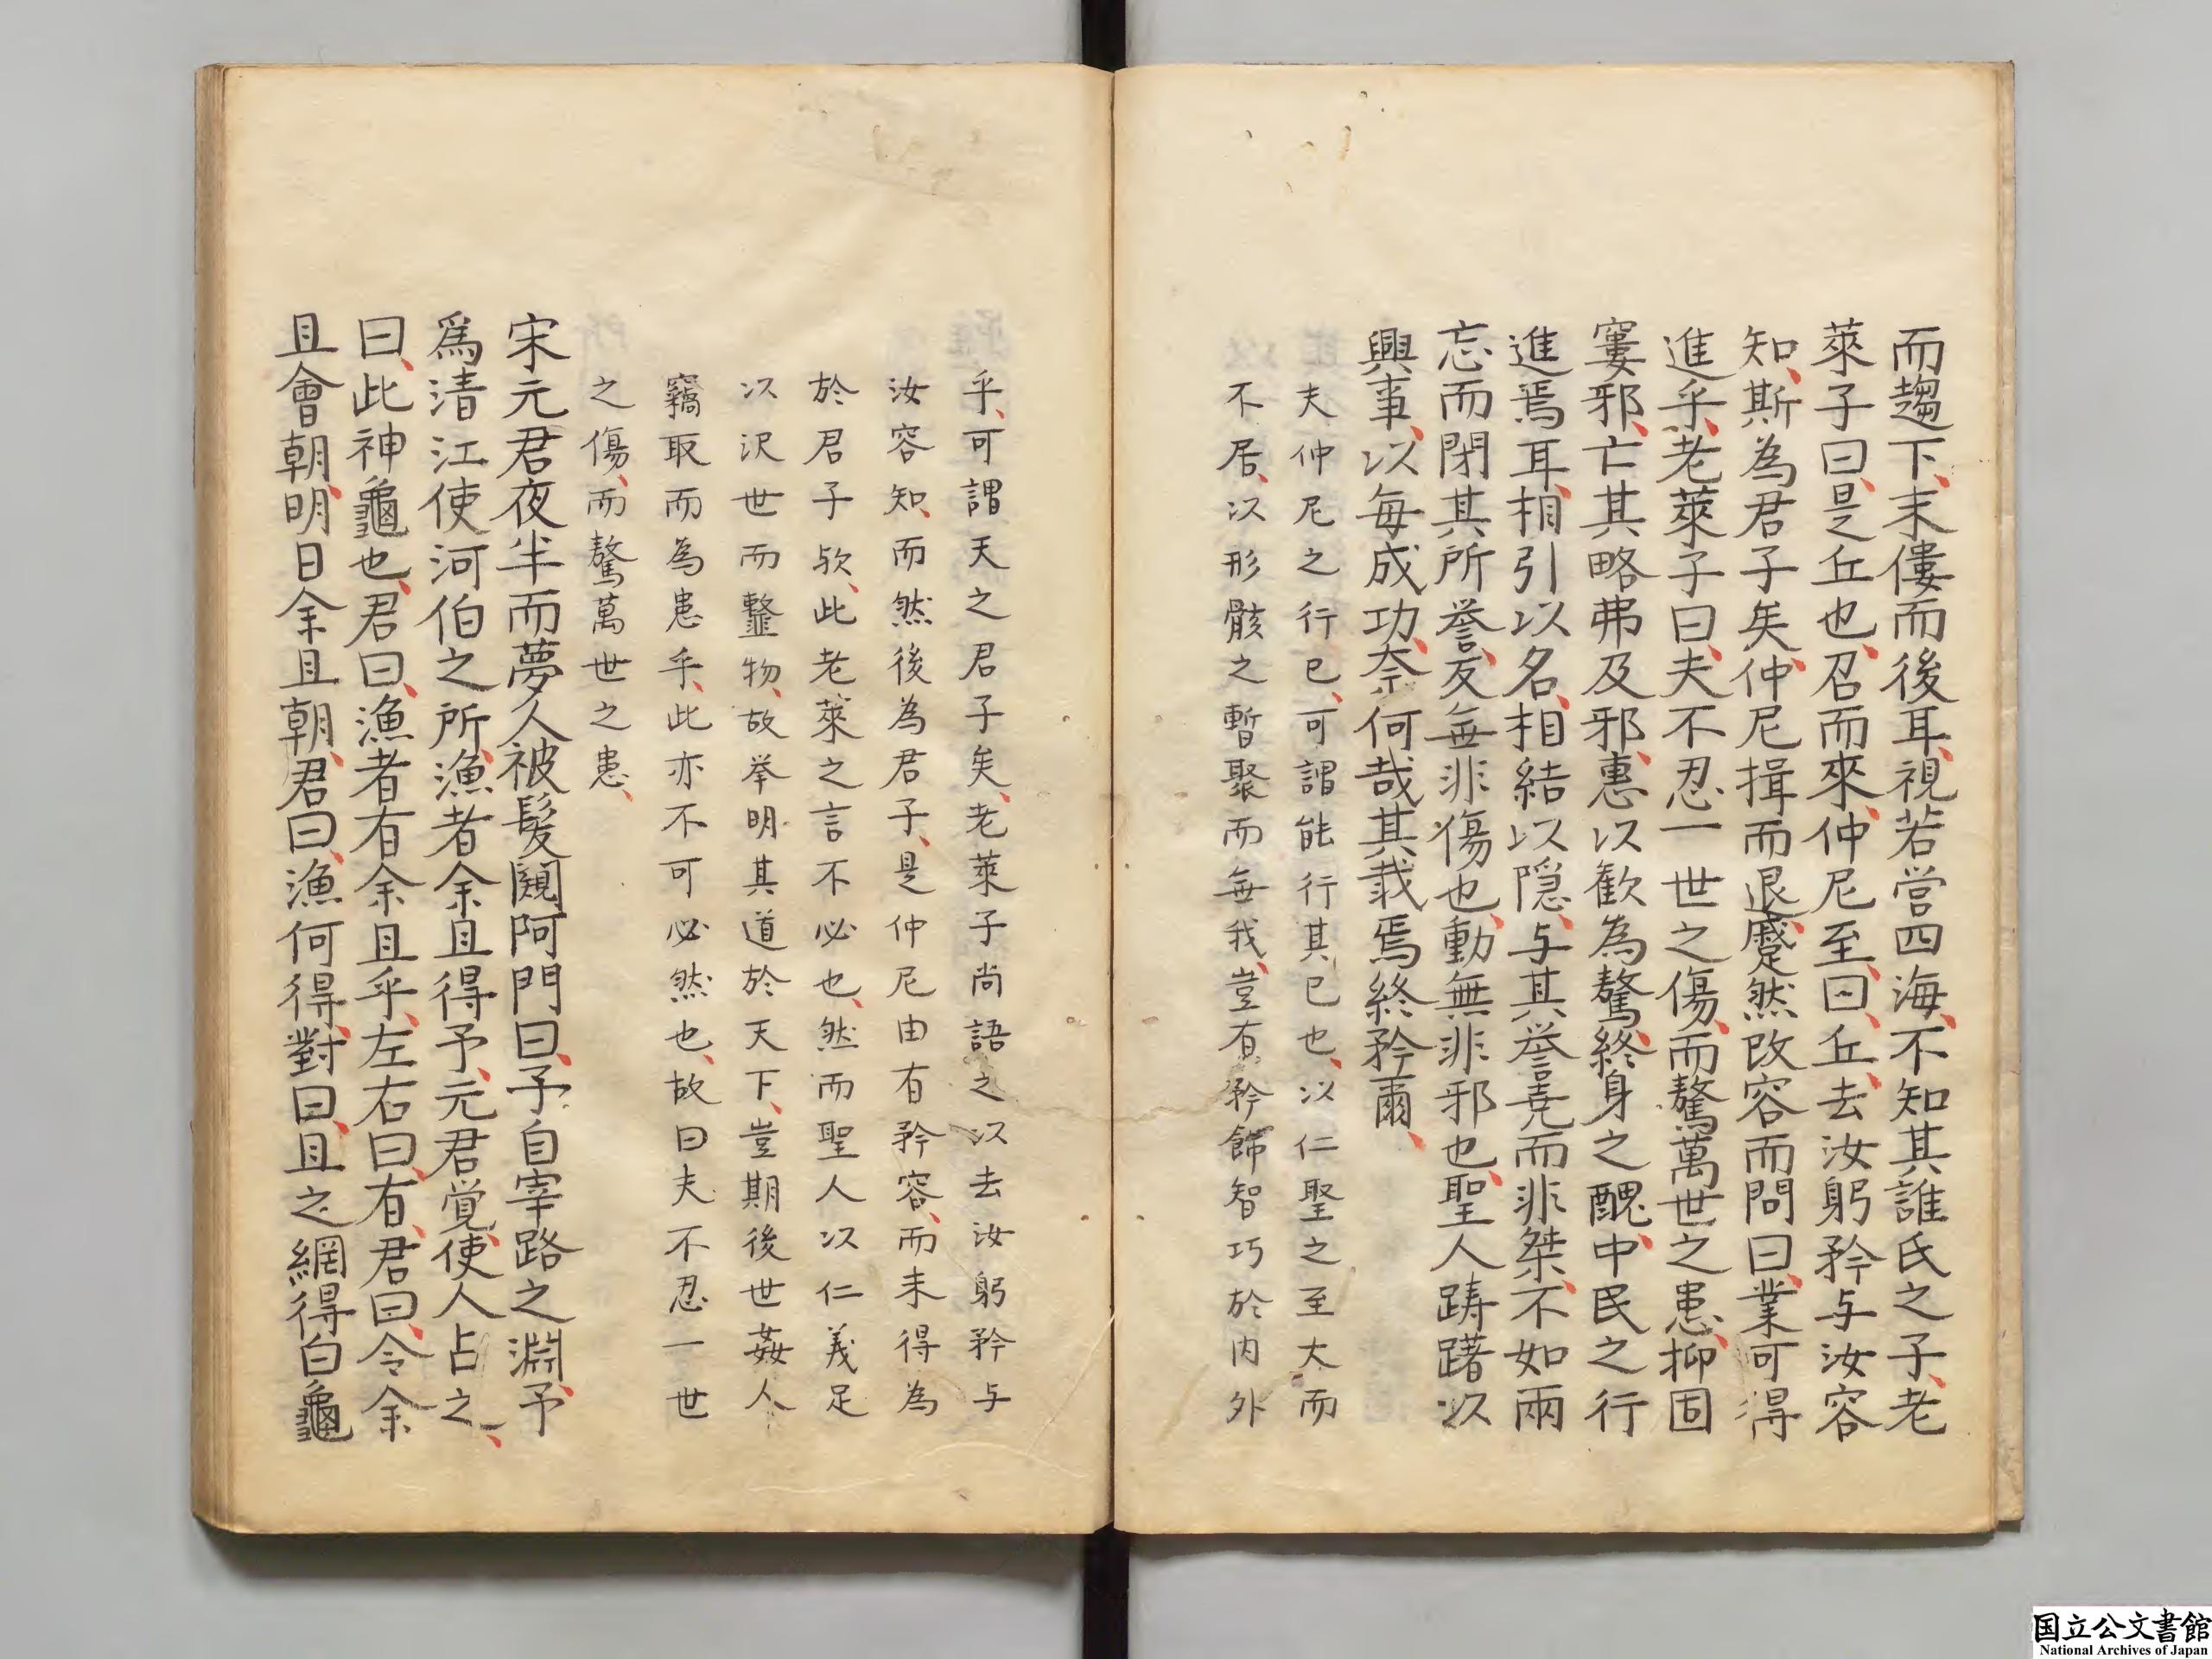 而趨下、末僂而後耳、視若営四海、不知其誰氏之子、老
萊子曰、是丘也、召而來、仲尼至、曰、丘、去汝躬矜与汝容
知、斯為君子矣、仲尼揖而退、蹙然改容而問曰、業可得
進乎、老萊子曰、夫不忍一世之傷、而驁萬世之患、抑固
窶邪、亡其略弗及邪、惠以歓為驁、終身之醜、中民之行
進焉耳、相引以名、相結以隠、与其誉尭而非桀、不如兩
忘而閉其所誉、反無非傷也、動無非邪也、聖人躊躇以
興事、以毎成功、奈何哉其載焉終矜爾、
夫仲尼之行已、可謂能行其已也、以仁聖之至大而
不居、以形骸之暫聚而無我、豈有矜飾智巧於内外
乎、可謂天之君子矣、老萊子尚語之以去汝躬矜与
汝容知、而然後為君子、是仲尼由有矜容、而未得為
於君子欤、此老萊之言不必也、然而聖人以仁義足
以沢世而整物、故挙明其道於天下、豈期後世姦人
竊取而為患乎、此亦不可必然也、故曰夫不忍一世
之傷、而驁萬世之患、
宋元君夜半而夢人被髪闚阿門曰、予自宰路之淵、予
為清江使河伯之所、漁者余且得予、元君覚、使人占之、
曰、此神龜也、君曰、漁者有余且乎、左右曰、有、君曰、令余
且會朝、明日余且朝、君曰、漁何得、對曰、且之網得白龜
国立公文書館
National Archives of Japan